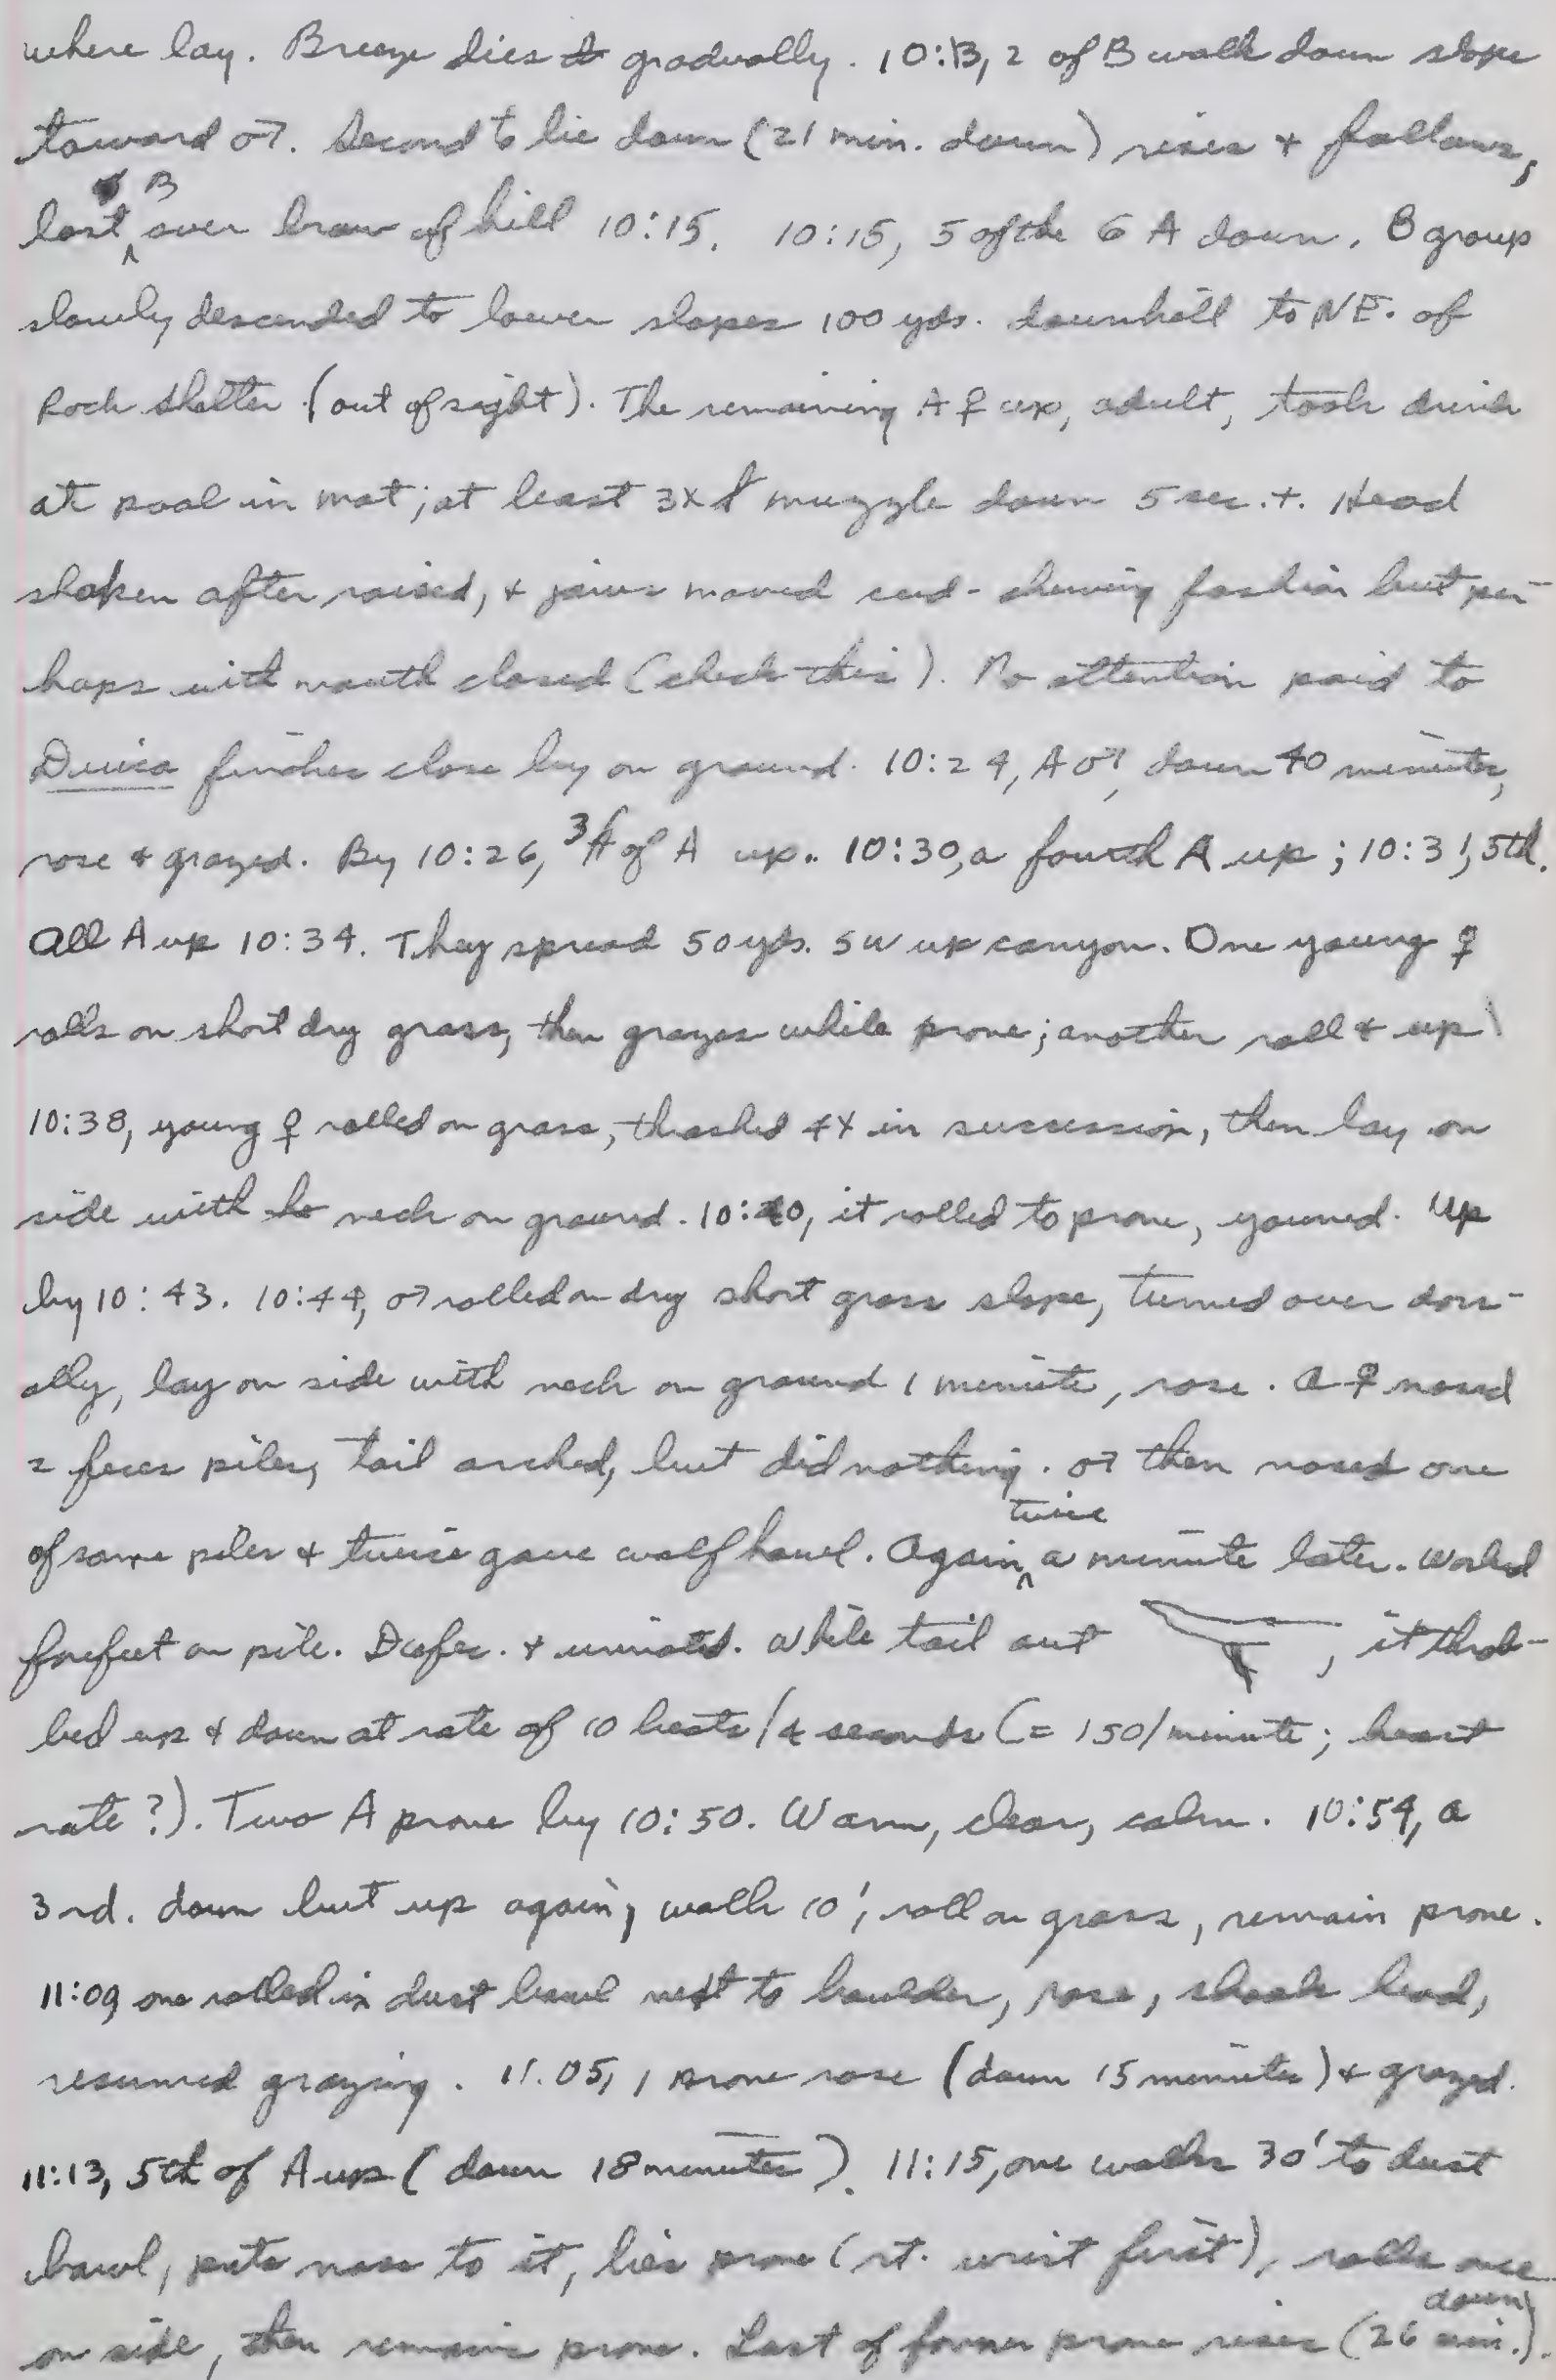 where lay. Breeze dies gradually. 10:13, 2 of B walk down slope
toward ♂. Second to lie down (21 min. down) rises + follows,
last B over brow of hill 10:15. 10:15, 5 of the 6 A down. B group
slowly descended to lower slopes 100 yds. downhill to NE. of
Rock Shelter (out of sight). The remaining A ♀ up, adult, took drink
at pool in mat; at least 3X muzzle down 5 sec. +. Head
shaken after raised, + jaws moved cud-chewing fashion but per-
haps with mouth closed (check this). No attention paid to
Diuca finches close by on ground. 10:24, A ♂, down 40 minutes,
rose + grazed. By 10:26, 3 of A up. 10:30, a fourth A up; 10:31, 5th.
All A up 10:34. They spread 50 yds. SW up canyon. One young ♀
rolls on short dry grass, then grazes while prone; another roll & up
10:38, young ♀ rolled on grass, thrashed 4X in succession, then lay on
side with neck on ground. 10:40, it rolled to prone, yawned. Up
by 10:43. 10:44, ♂ rolled on dry short grass slope, turned over dors-
ally, lay on side with neck on ground 1 minute, rose. A ♀ nosed
2 feces piles, tail arched, but did nothing. ♂ then nosed one
of same piles + twice gave wolf howl. Again twice a minute later. Worked
forefeet on pile. Defec. + urinated. While tail out , it throb-
bed up & down at rate of 10 beats/4 seconds (= 150/minute; heart
rate?). Two A prone by 10:50. Warm, clear, calm. 10:54, a
3rd. down but up again, walk 10', roll on grass, remain prone.
11:09, one rolled in dust bowl next to boulder, rose, shook head,
resumed grazing. 11:05, 1 prone rose (down 15 minutes) + grazed.
11:13, 5th of A up (down 18 minutes). 11:15, one walks 30' to dust
bowl, puts nose to it, lies prone (rt. wrist first), rolls once
on side, then remains prone. Last of former prone rises (26 min. down).